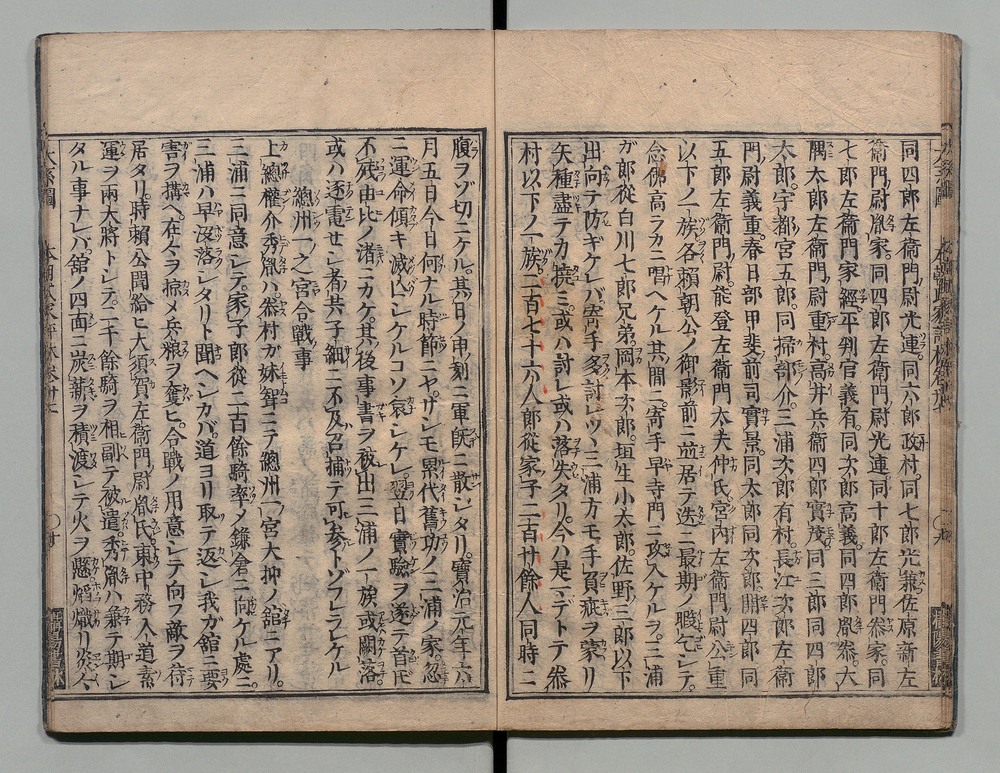 同四郎左衛門尉光連。同六郎政村。同七郎光兼佐原新左
衛門尉胤家。同四郎左衛門尉光連。同十郎左衛門泰家。同
七郎左衛門家經。平判官義有。同次郎高義。同四郎胤泰。六
隅太郎左衛門尉重村。高井兵衛四郎實茂同三郎同四郎
太郎。宇都宮五郎同掃部介三浦次郎有村。長江次郎左衛
門尉義重。春日部甲斐前司實景。同太郎同次郎關四郎同
五郎左衛門尉。能登左衛門太夫仲氏宮内左衛門尉公重
以下ノ一族各頼朝公ノ御影前ニ並居テ迭ニ最期ノ暇乞シテ。
念佛高ラカニ唱ヘケル其間ニ。寄手早寺門ニ攻入ケルヲ。三浦
ガ郎從白川七郎兄弟。岡本次郎。垣生小太郎。佐野三郎以下
出向テ防ギケレバ。寄手多討レツヽ三浦方モ手負疵ヲ蒙リ
矢種盡テカ撓ミ或ハ討レ或ハ落失タリ。今ハ是マデトテ泰
村以下ノ一族。二百七十六人郎從家子二百廿餘人同時ニ
腹ヲゾ切ニケル。其日ノ申ノ刻ニ軍既ニ散シタリ。寶治元年六
月五日今日何ナル時節ニヤ。サシモ累代舊功ノ三浦ノ家忽
ニ運命傾キ滅亡シケルコソ哀シケレ。翌日實驗ヲ遂テ首氏
不殘由比ノ渚ニカケ。其後事書ヲ被出三浦ノ一族或闕落
或ハ逐電セシ者共子細ニ不及召捕テ可參トゾフラレケル
總州一之宮合戰事
上總權介秀胤ハ。泰村ガ妹聟ニテ總州一宮大柳ノ舘ニアリ。
三浦ニ同意シテ。家子郎從二百餘騎率メ鎌倉ニ向ケル處ニ。
三浦ハ早沒落シタリト聞ヘシカバ。道ヨリ取テ返シ我ガ舘ニ要
害ヲ搆ヘ。在々ヲ掠メ兵粮ヲ奪ヒ。合戰ノ用意シテ向フ敵ヲ待
居タリ。時頼公聞給ヒ大須賀左衛門尉胤氏。東中務入道素
暹ヲ兩大將トシテ。二千餘騎ヲ相副テ被遣。秀胤ハ兼テ期シ
タル事ナレバ。舘ノ四面ニ炭薪ヲ積渡シテ火ヲ懸焰熾リ炎々